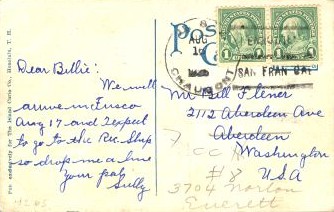 For exclusively by The Island Curio Co., Honolulu, T. H.
Post
Ca
AUG
16
CHAUMONT
SAN FRAN CAL
1
1
Dear Billie:
We will
arrive in Frisco
Aug 17 and I expect
to go to the Rec. Ship
so drop me a line
Your pal
Sully
Mr Bill Flener
2112 Aberdeen Ave
Aberdeen
Washington
#8 USA
3704 Norton
Everett